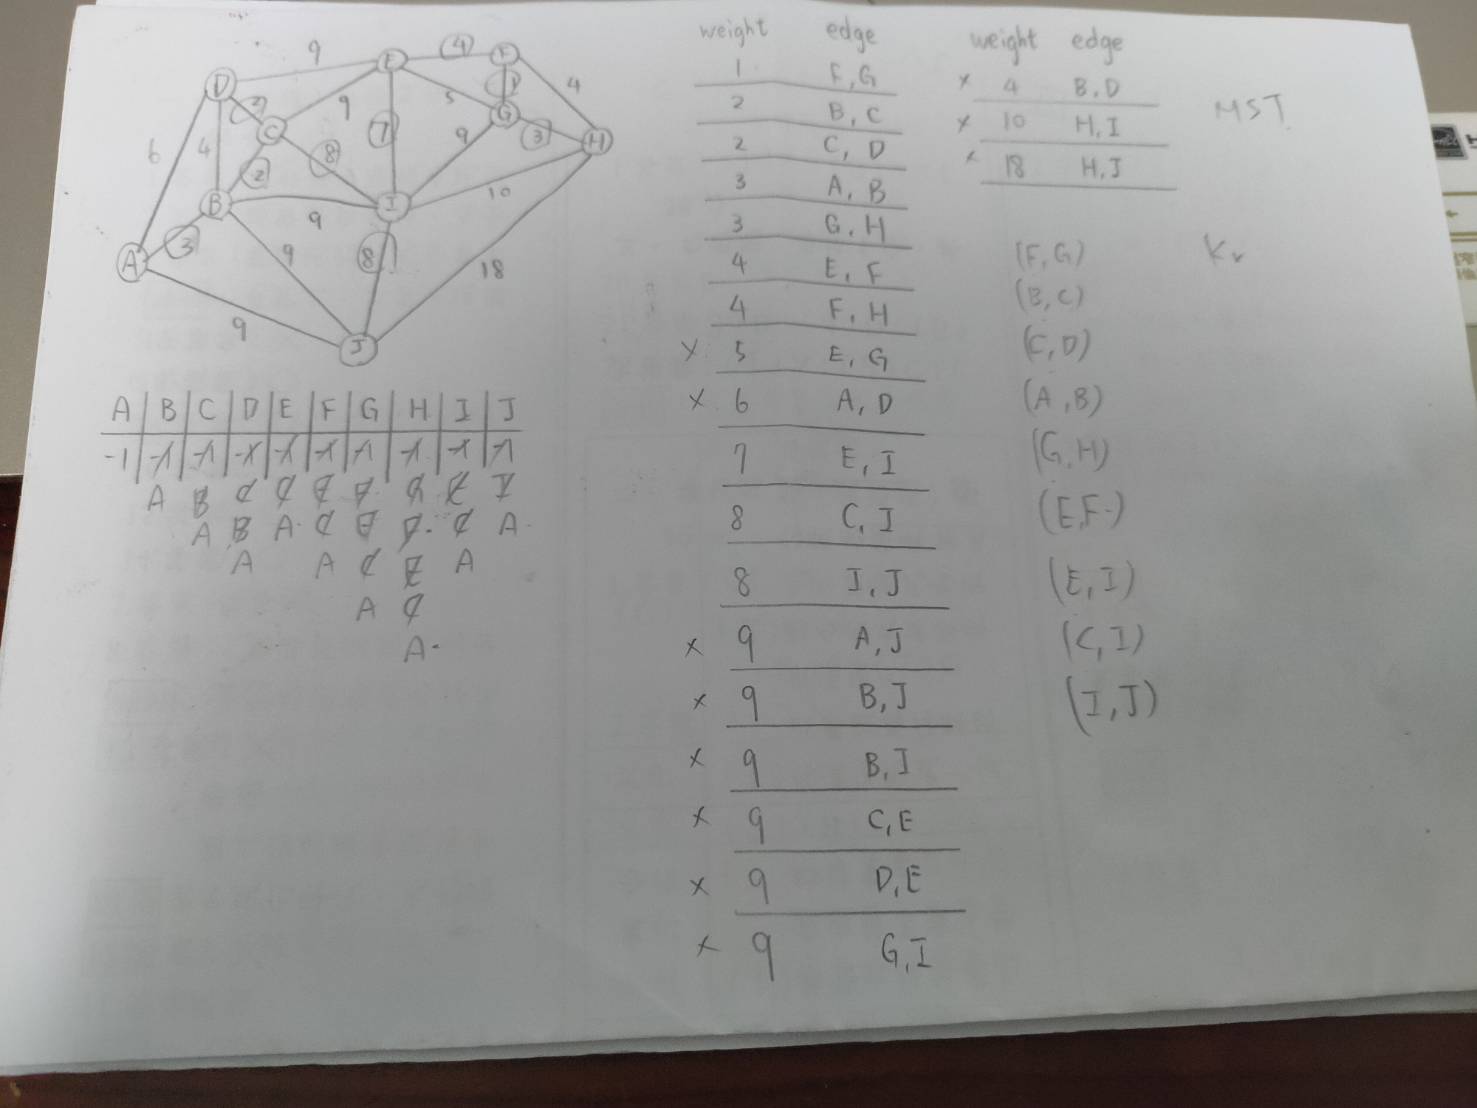 9
4
D
E
F
4
2
C
9
5
1
G
6
4
7
9
3
H
2
8
B
I
10
9
3
9
8
A
18
9
J
A B C D E F G H I J
-1 -1 -1 -1 -1 -1 -1 -1 -1 -1
A B C C E F G E I
A B A C E F C A
A A C E A
A C
A
weight edge
1 F,G
2 B,C
2 C,D
3 A,B
3 G,H
4 E,F
4 F,H
x 5 E,G
x 6 A,D
7 E,I
8 C,I
8 I,J
x 9 A,J
x 9 B,J
x 9 B,I
x 9 C,E
x 9 D,E
x 9 G,I
weight edge
x 4 B,D
x 10 H,I
x 18 H,J
MST.
(F,G)
(B,C)
(C,D)
(A,B)
(G,H)
(E,F)
(E,I)
(C,I)
(I,J)